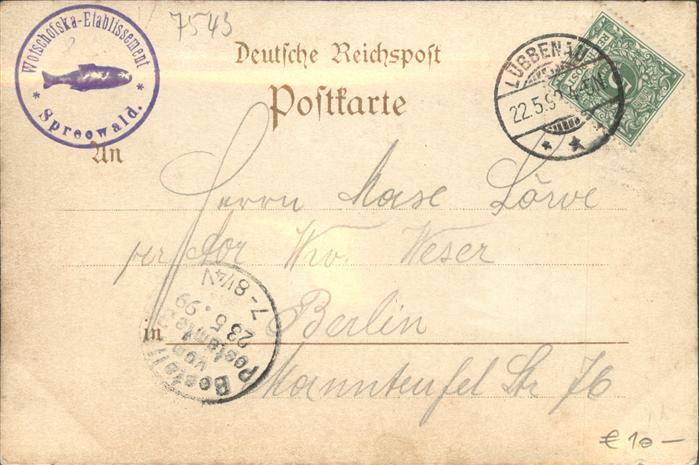 Wotschofska-Etablissement
* Spreewald. *
7543
Deutsche Reichspost
Postkarte
LÜBBENAU
22.5.9
An
Herrn Max Löwe
per Adr Wv. Weser
in Berlin
Manteufel Str 76
Bestellt
vom
Postamte
23 5.99
7-8¼V
€ 10—